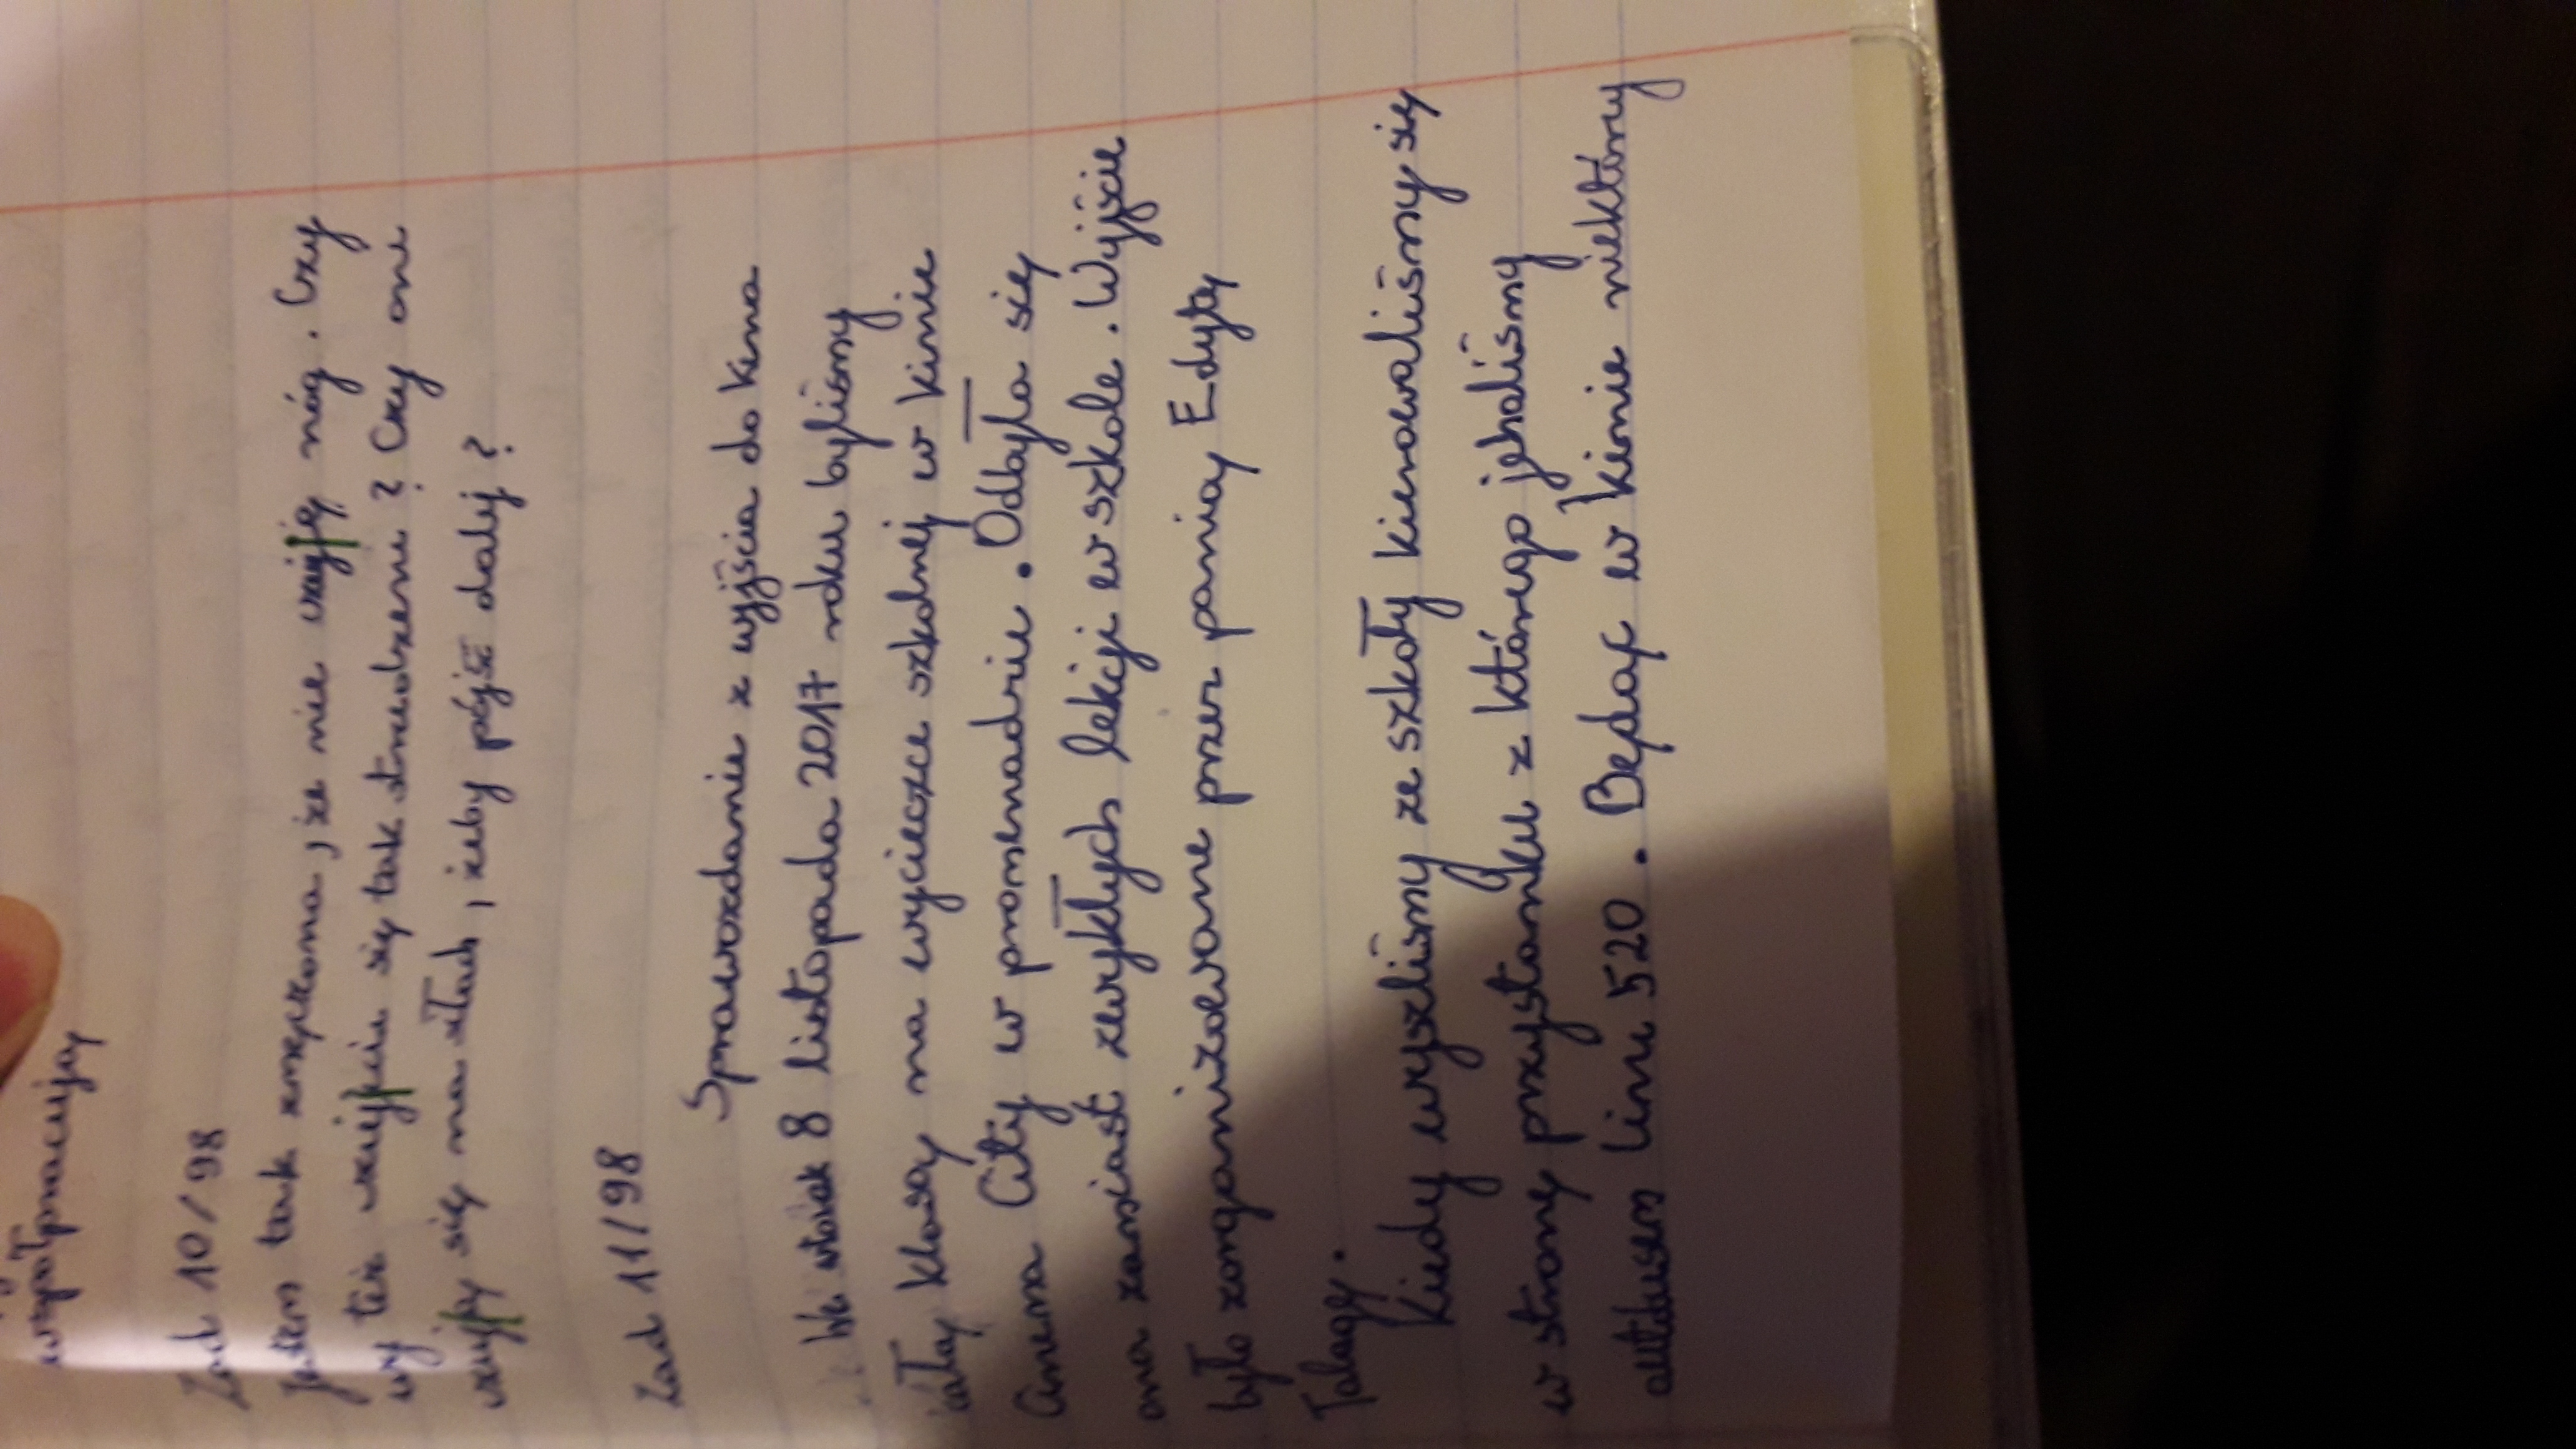 współpracują
Zad 10/98
Jestem tak zmęczona, że nie czuję nóg. Czy
wy też czujecie się tak strudzeni? Czy oni
czują się na siłach, żeby pójść dalej?
Zad 11/98
Sprawozdanie z wyjścia do kina
We wtorek 8 listopada 2017 roku byliśmy
całą klasą na wycieczce szkolnej w kinie
Cinema City w promenadzie. Odbyła się
ona zamiast zwykłych lekcji w szkole. Wyjście
było zorganizowane przez panią Edytę
Kiedy wyszliśmy ze szkoły kierowaliśmy się
w stronę przystanku z którego jehaliśmy
autobusem lini 520. Będąc w kinie niektórzy